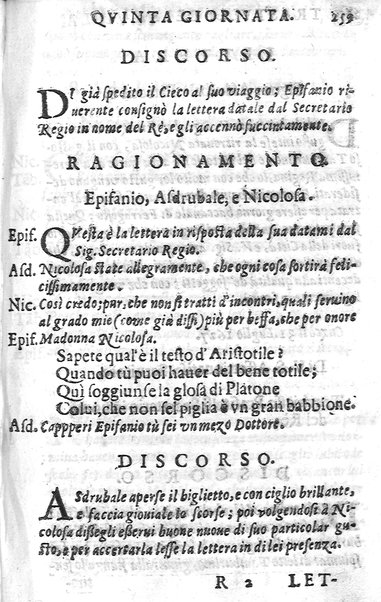 QVINTA GIORNATA. 259
DISCORSO.
DI già spedito il Cieco al suo viaggio; Epifanio ri-
uerente consignò la lettera datale dal Secretario
Regio in nome del Rè, e gli accennò succintamente.
RAGIONAMENTO.
Epifanio, Asdrubale, e Nicolosa.
Epif. QVesta è la lettera in risposta della sua datami dal
Sig. Secretario Regio.
Asd. Nicolosa state allegramente, che ogni cosa sortirà feli-
cissimamente.
Nic. Così credo; pur, che non si tratti d'incontri, quali seruino
al grado mio (come già dissi) più per beffa, che per onore
Epif. Madonna Nicolosa.
Sapete qual'è il testo d'Aristotile?
Quando tù puoi hauer del bene totile;
Quì soggiunse la glosa di Platone
Colui, che non sel piglia è vn gran babbione.
Asd. Cappperi Epifanio tù sei vn mezo Dottore.
DISCORSO.
ASdrubale aperse il biglietto, e con ciglio brillante,
e faccia giouiale lo scorse; poi volgendosi à Ni-
colosa dissegli esserui buone nuoue di suo particolar gu-
sto, e per accertarla lesse la lettera in di lei presenza.
R 2 LET-